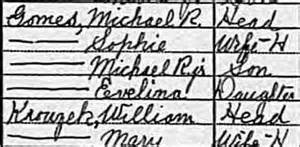 Gomes, Michael R. Head
— Sophie Wife-H
— Michael R jr Son
— Evelina Daughter
Krouzek, William Head
— Mary Wife-H